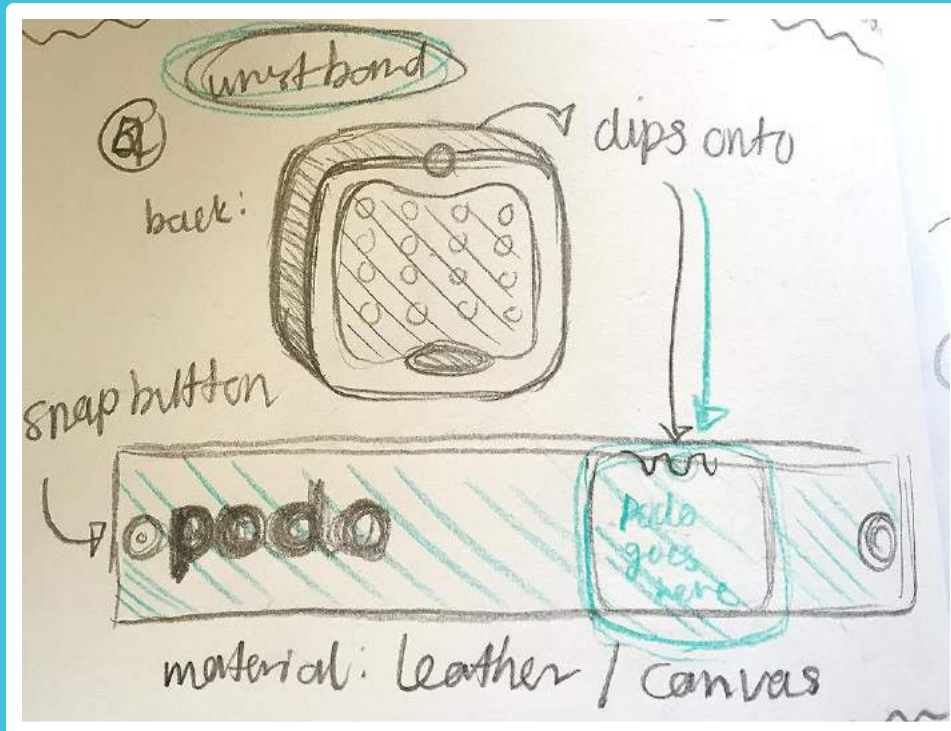 wristband
back:
clips onto
snap button
podo
podo
goes
here
material: leather / canvas